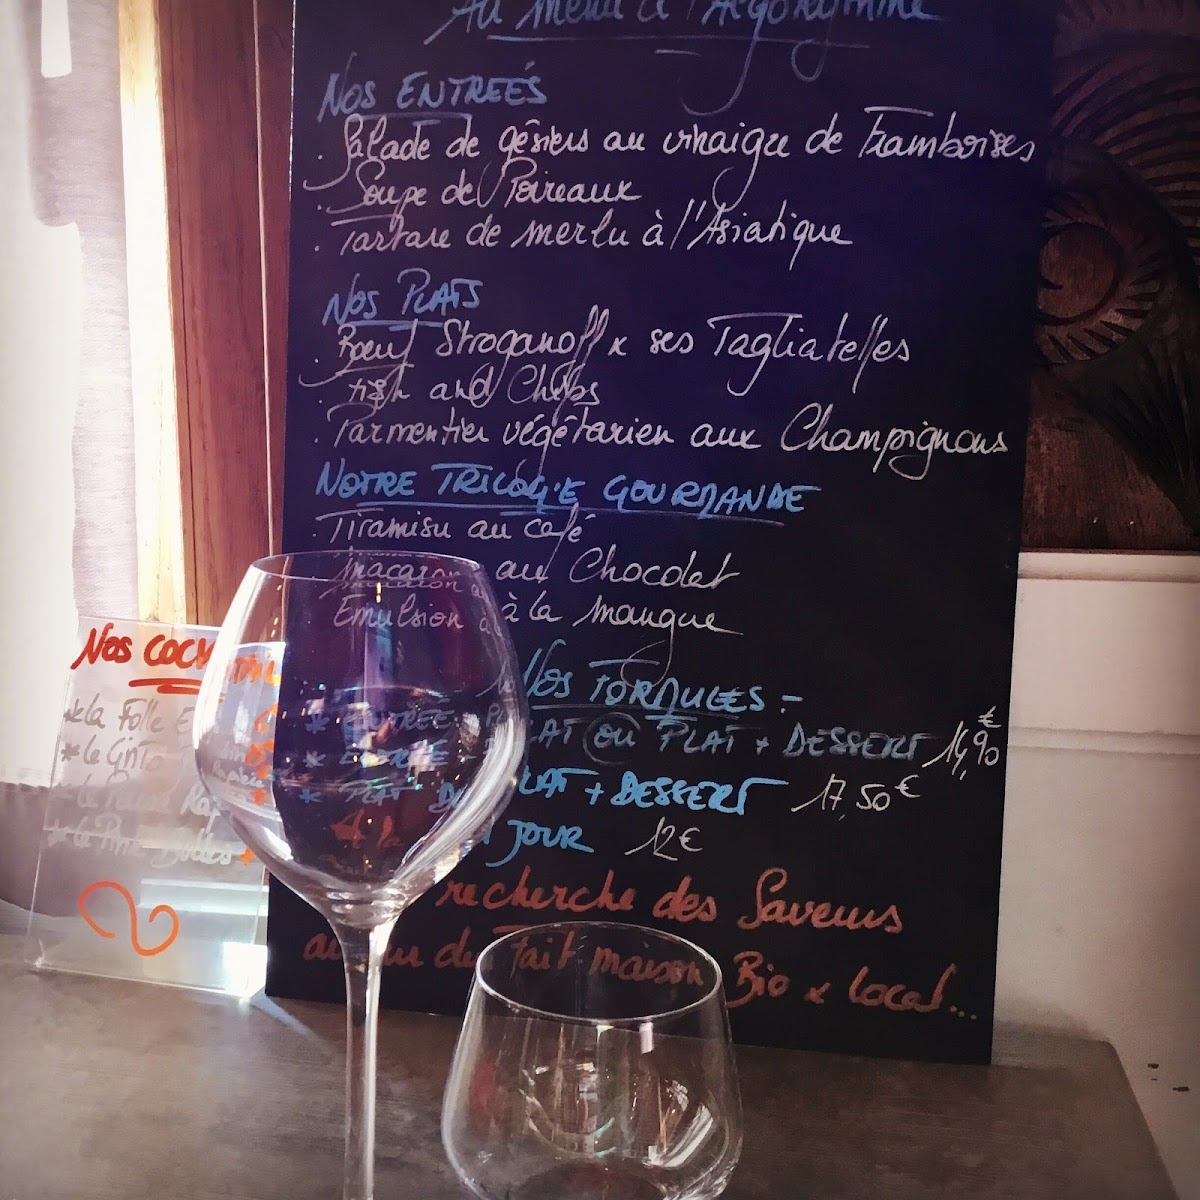 Au menu à l'Argonymine
Nos Entrées
. Salade de gésiers au vinaigre de Framboises
. Soupe de Poireaux
. Tartare de merlu à l'Asiatique
Nos Plats
. Bœuf Stroganoff x ses Tagliatelles
. Fish and Chips
. Parmentier végétarien aux Champignons
Notre Trilogie Gourmande
. Tiramisu au café
Macaron au Chocolat
Emulsion à la mangue
Nos Formules :-
* Entrée Plat ou Plat + Dessert 14,90 €
* Entrée Plat + Dessert 17,50 €
* Plat Du Jour 12 €
recherche des Saveurs
autour du Fait maison Bio x local...
Nos Cocktail
* la Folle
* le
* le
* le Bulles